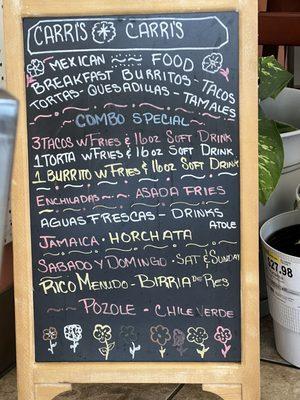 CARRI'S CARRI'S
MEXICAN FOOD
BREAKFAST BURRITOS - TACOS
TORTAS - QUESADILLAS - TAMALES
COMBO SPECIAL
3 TACOS W/FRIES & 16oz SOFT DRINK
1 TORTA W/FRIES & 16oz SOFT DRINK
1 BURRITO W/FRIES & 16oz SOFT DRINK
ENCHILADAS ASADA FRIES
AGUAS FRESCAS - DRINKS
ATOLE
JAMAICA - HORCHATA
SABADO Y DOMINGO - SAT & SUNDAY
RICO MENUDO - BIRRIA DE RES
POZOLE - CHILE VERDE
$27.98